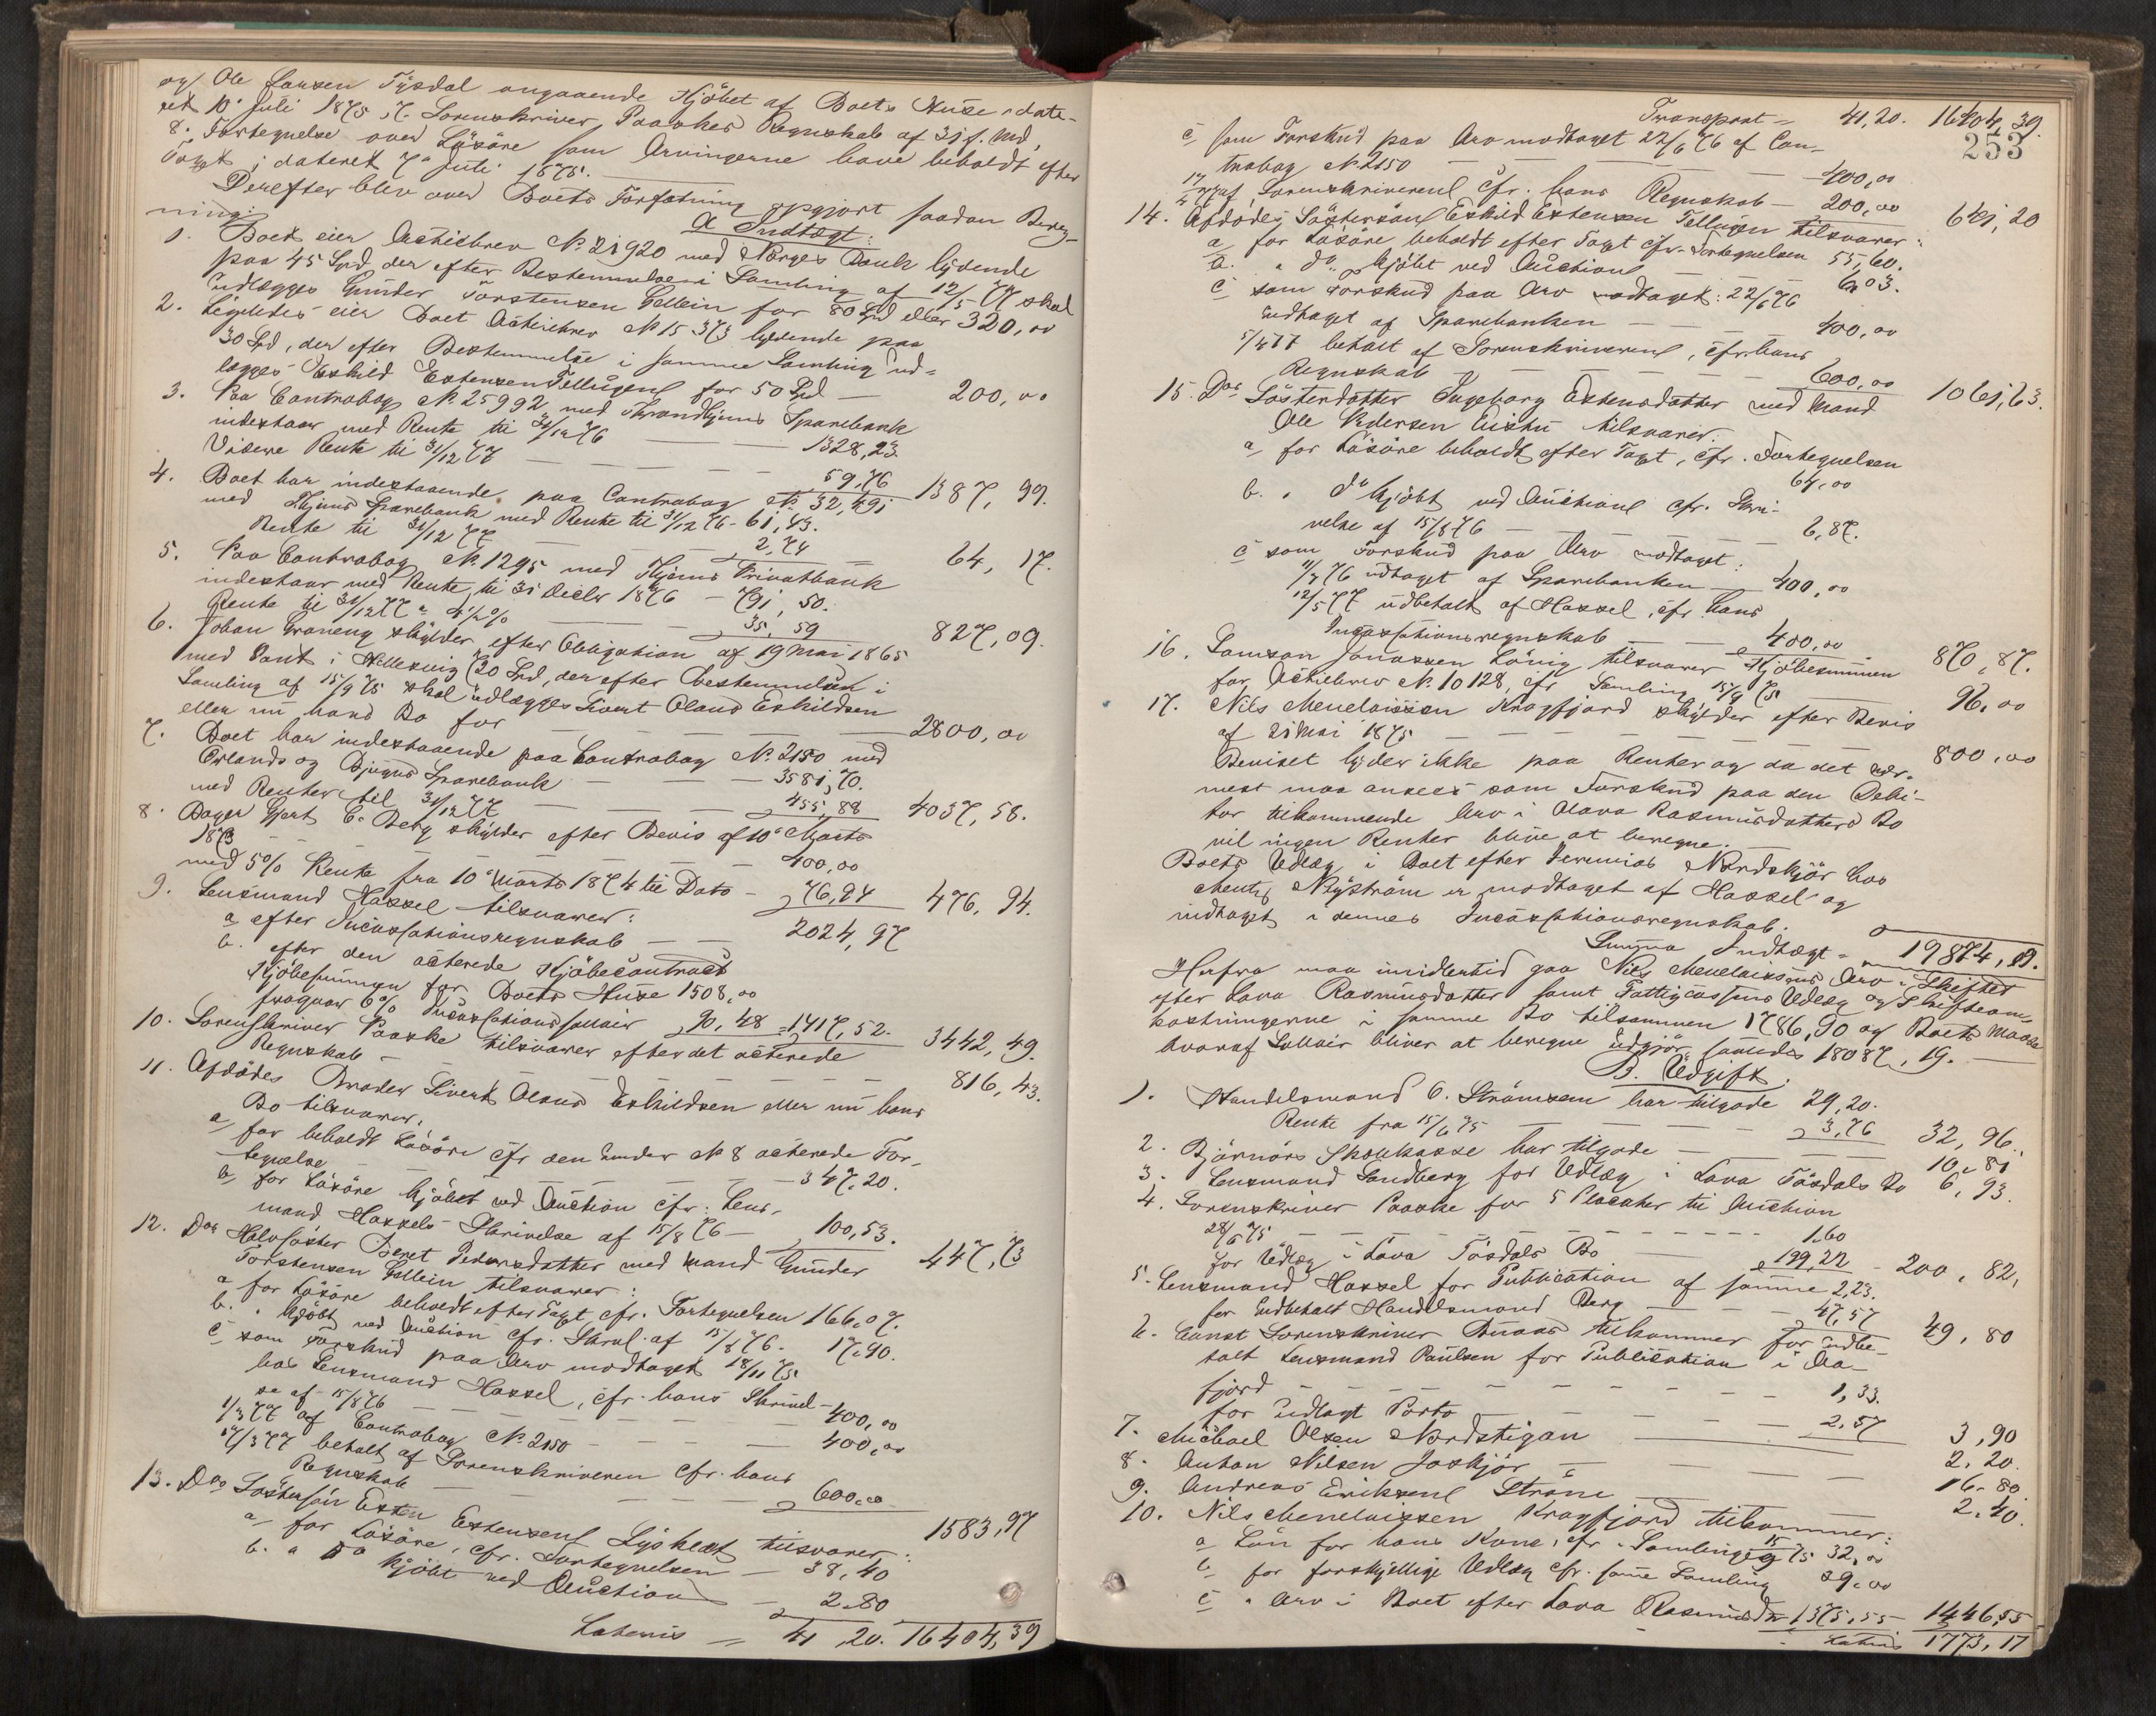 og Ole Larsen Tösdal angaaende Kjöbet af Boets Huse, date-
ret 10de Juli 1875, 7. Sorenskriver Paaskes Regnskab af 31 f. Md,
8. Fortegnelse over Lösöre som Arvingerne have beholdt efter
Taxt, dateret 7de Juli 1875.
Derefter blev over Boets Forfatning opgjort saadan Bereg-
ning:
A Indtægt:
1. Boet eier Actiebrev No. 21920 med Norges Bank lydende
paa 45 Spd der efter Bestemmelse i Samling af 12/5 77 skal
udlægges Gunder Torstensen Gellein for 80 Spd eller 320,00
2. Ligeledes eier Boet Actiebrev No 15373 lydende paa
30 Spd, der efter Bestemmelse i samme Samling ud-
lægges Eskild Estensen Tellugen for 50 Spd — 200,00
3. Paa Contrabog No. 25992 med Throndhjems Sparebank
indestaar med Rente til 31/12 76 — 1328,23.
Videre Rente til 31/12 77 — 59,76 1387,99.
4. Boet har indestaaende paa Contrabog No. 32,491
med Thjems Sparebank med Rente til 31/12 76 - 61,43.
Rente til 31/12 77 — 2,74 64,17.
5. Paa Contrabog No. 1295 med Thjems Privatbank
indestaar med Rente til 31 Decbr 1876 — 791,50.
Rente til 31/12 77 a 4 1/2 % — 35,59 827,09.
6. Johan Graneng skylder efter Obligation af 19 Mai 1865
med Pant i Hellesvig 720 Spd, der efter Bestemmelsen i
Samling af 15/9 75 skal udlægges Sivert Olaus Eskildsen
eller nu hans Bo for — 2800,00
7. Boet har indestaaende paa Contrabog No. 2150 med
Örlands og Bjugns Sparebank — 3581,70.
med Renter til 31/12 77 — 455,88 4037,58.
8. Bager Gjert C. Berg skylder efter Bevis af 10de Marts
1873 — 400,00
med 5% Rente fra 10de Marts 1874 til Dato — 76,94 476,94.
9. Lensmand Hassel tilsvarer:
a efter Incassationsregnskab — 2024,97
b. efter den acterede Kjöbecontract
Kjöbesummen for Boets Huse 1508,00
fragaar 6% Incassationssalair 90,48 = 1417,52. 3442,49.
10. Sorenskriver Paaske tilsvarer efter det acterede
Regnskab — 816,43.
11. Afdödes Broder Sivert Olaus Eskildsen eller nu hans
Bo tilsvarer:
a/ for beholdt Lösöre cfr den under No 8 acterede For-
tegnelse — 347,20.
b/ for Lösöre kjöbt ved Auction cfr. Lens-
mand Hassels Skrivelse af 15/8 76 — 100,53. 447,73
12. Dos Halvsöster Beret Pedersdatter med Mand Gunder
Torstensen Gellein tilsvarer:
a for Lösöre beholdt efter Taxt cfr. Fortegnelsen 166,07.
b. " kjöbt ved Auction cfr. Skrvl. af 15/8 76 - 17,90.
c som Forskud paa Arv modtaget 18/11 75
hos Lensmand Hassel, cfr. hans Skrivel-
se af 15/8 76 — 400,00
1/3 77 af Contrabog No. 2150 — 400,00
/3 77 betalt af Sorenskriveren cfr. hans
Regnskab — 600,00 1583,97
13. Dos Söstersön Esten Estensen Lysklæt tilsvarer:
a/ for Lösöre, cfr. Fortegnelsen — 38,40
b. " Do kjöbt ved Auction — 2,80
Lateris = 41,20. 16404,39
Transport = 41,20. 16404,39.
253
c/ som Forskud paa Arv modtaget 22/6 76 af Con-
trabog No. 2150 — 400,00
17/4 77 af Sorenskriveren cfr. hans Regnskab — 200,00 641,20
14. Afdödes Söstersön Eskild Estensen Tellugen tilsvarer:
a/ for Lösöre beholdt efter Taxt cfr. Fortegnelsen 55,60.
b. " do. kjöbt ved Auction — 6,03.
c som Forskud paa Arv modtaget: 22/6 76
udtaget af Sparebanken — 400,00
5/4 77 betalt af Sorenskriveren, cfr. hans
Regnskab — 600,00 1061,63.
15. Dos Sösterdatter Ingeborg Estensdatter med Mand
Ole Pedersen tilsvarer:
a/ for Lösöre beholdt efter Taxt, cfr. Fortegnelsen
64,00
b. " do kjöbt ved Auction cfr. Skri-
velse af 15/8 76 — 6,87.
c som Forskud paa Arv modtaget:
11/7 76 udtaget af Sparebanken — 400,00
12/5 77 udbetalt af Hassel, cfr. hans
Incassationsregnskab — 400,00 870,87.
16. Samson Jonassen Lönig tilsvarer Kjöbesummen
for Actiebrev No. 10128, cfr. Samling 15/9 75 — 96,00
17. Nils Menelaissen Kragfjord skylder efter Bevis
af 21 Mai 1875 — 800,00
Beviset lyder ikke paa Renter og da det nær-
mest maa ansees som Forskud paa den Debi-
tor tilkommende Arv i Lava Rasmusdatters Bo
vil ingen Renter blive at beregne.
Boets Udlæg i Boet efter Jeremias Nordskjör hos
Mentz Nyström er modtaget af Hassel og
indtaget i dennes Incassationsregnskab.
Summa Indtægt = 19874,09.
Herfra maa imidlertid gaa Nils Menelaissens Arv i Skiftet
efter Lava Rasmusdatter samt Fattigcassens Udlæg og Skifteom-
kostningerne i samme Bo tilsammen 1786,90 og Boets Masse
hvoraf Sallair bliver at beregne udgjör saaledes 18087,19. —
B. Udgift.
1. Handelsmand O. Strömsem har tilgode 29,20.
Rente fra 15/6 75 — 3,76 32,96.
2. Björnörs Skolekasse har tilgode — 10,81
3. Lensmand Sandberg for Udlæg i Lava Tösdals Bo 6,93.
4. Sorenskriver Paaske for 5 Placater til Auction
28/6 75 — 1,60
for Udlæg i Lava Tösdals Bo — 199,22 — 200,82,
5. Lensmand Hassel for Publication af samme 2,23.
for Indbetalt Handelsmand Berg — 47,57 49,80
6. Const Sorenskriver Buaas tilkommer for Indbe-
talt Lensmand Paulsen for Publication i Aa-
fjord — 1,33.
for udlagt Porto — 2,57 3,90
7. Michael Olsen Nordstigan — 2,20.
8. Anton Nilsen Joskjör — 16,80.
9. Andreas Eriksen Ströne — 2,40.
10. Nils Menelaissen Kragfjord tilkommer:
a Lön for hans Kone, cfr. Samling 15/9 75 32,00
b for forskjellige Udlæg cfr. samme Samling 39,00
c " Arv i Boet efter Lava Rasmusdtr 1375,55 1446,55
Lateris 1773,17